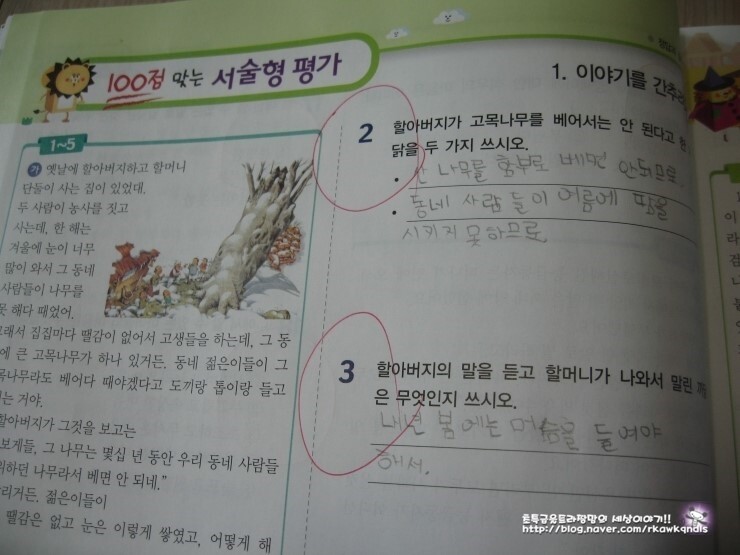 100점 맞는 서술형 평가
1. 이야기를 간추려
1~5
㉮ 옛날에 할아버지하고 할머니
단둘이 사는 집이 있었대.
두 사람이 농사를 짓고
사는데, 한 해는
겨울에 눈이 너무
많이 와서 그 동네
사람들이 나무를
못 해다 때었어.
그래서 집집마다 땔감이 없어서 고생들을 하는데, 그 동
네에 큰 고목나무가 하나 있거든. 동네 젊은이들이 그
고목나무라도 베어다 때야겠다고 도끼랑 톱이랑 들고
는 거야.
할아버지가 그것을 보고는
보게들, 그 나무는 몇십 년 동안 우리 동네 사람들
위하던 나무라서 베면 안 되네."
리거든. 젊은이들이
땔감은 없고 눈은 이렇게 쌓였고, 어떻게 해
2 할아버지가 고목나무를 베어서는 안 된다고 한
까닭을 두 가지 쓰시오.
• 산 나무를 함부로 베면 안되므로
• 동네 사람들이 여름에 땀을
시키지 못하므로
3 할아버지의 말을 듣고 할머니가 나와서 말린 까닭
은 무엇인지 쓰시오.
내년 봄에는 머슴을 들여야
해서.
초특급울트라짱맘의 세상이야기!!
http://blog.naver.com/rkawkqndls